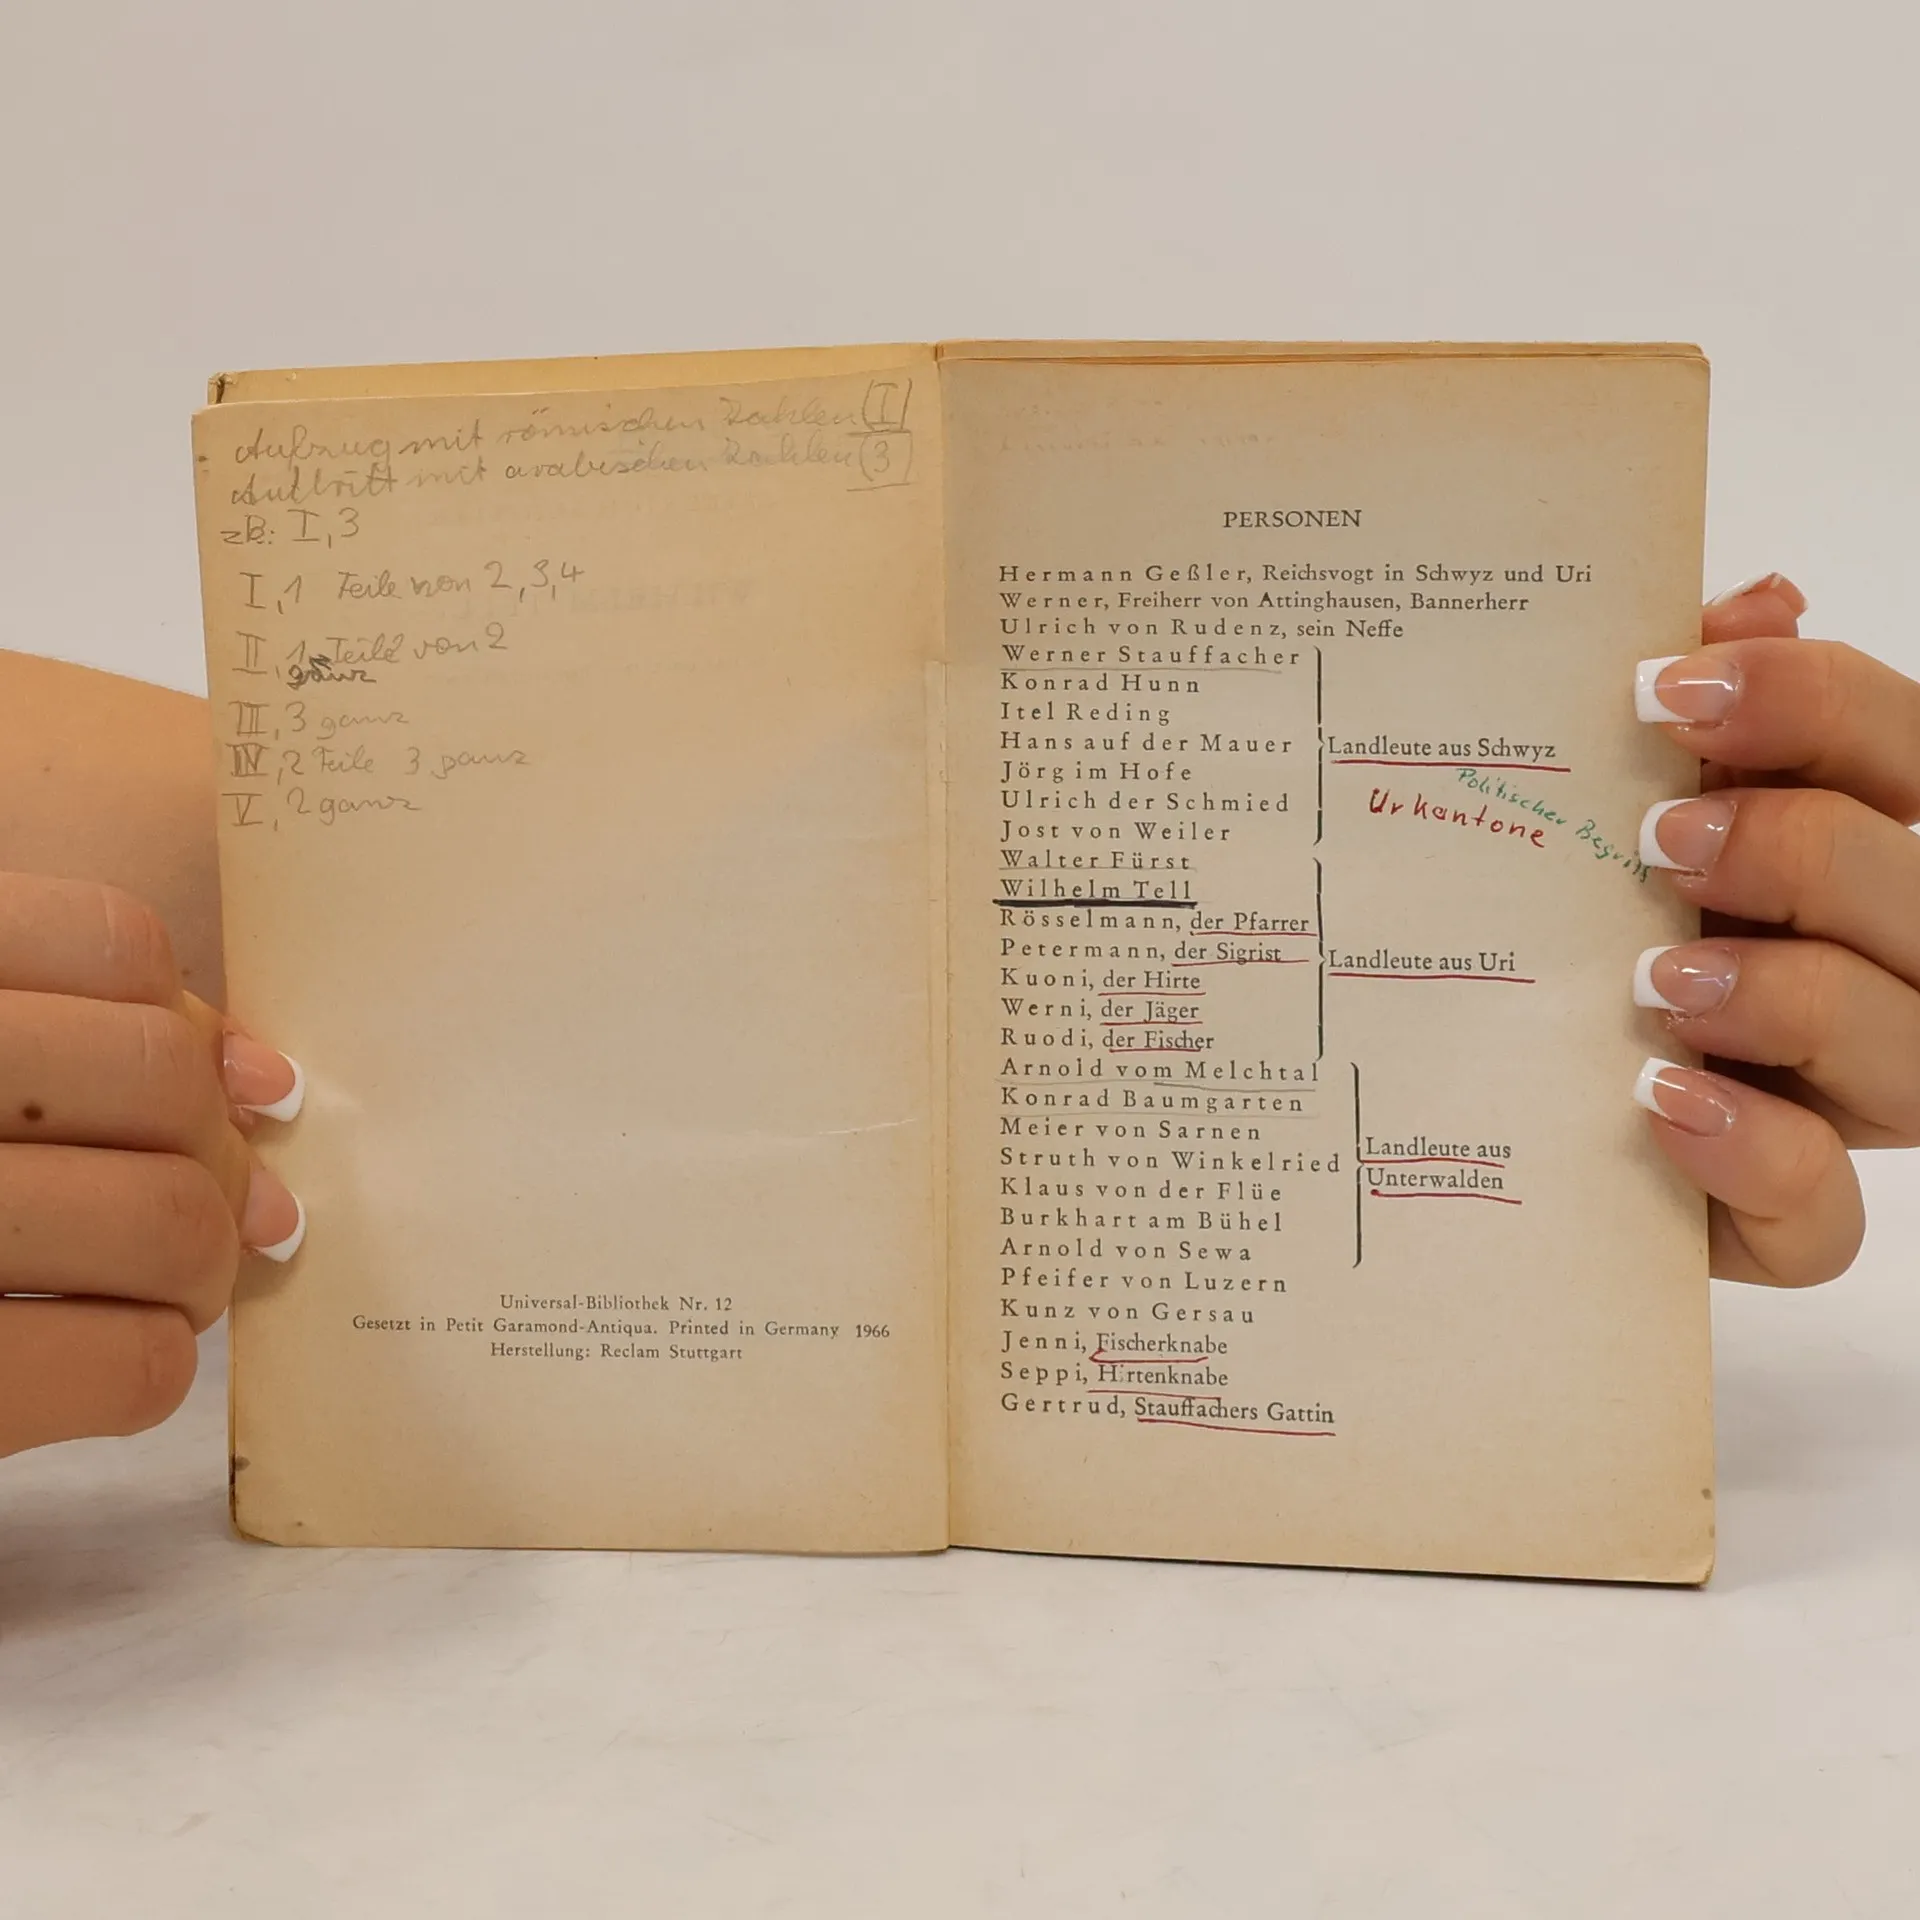 Aufzug mit römischen Zahlen (I)
Auftritt mit arabischen Zahlen (3)
zB: I, 3
I, 1 Teile von 2, 3, 4
II, 1 Teile von 2
ganz
III, 3 ganz
IV, 2 Teile 3 ganz
V, 2 ganz
Universal-Bibliothek Nr. 12
Gesetzt in Petit Garamond-Antiqua. Printed in Germany 1966
Herstellung: Reclam Stuttgart
PERSONEN
Hermann Geßler, Reichsvogt in Schwyz und Uri
Werner, Freiherr von Attinghausen, Bannerherr
Ulrich von Rudenz, sein Neffe
Werner Stauffacher
Konrad Hunn
Itel Reding
Hans auf der Mauer
Jörg im Hofe
Ulrich der Schmied
Jost von Weiler
Landleute aus Schwyz
Politischer Begriff
Urkantone
Walter Fürst
Wilhelm Tell
Rösselmann, der Pfarrer
Petermann, der Sigrist
Kuoni, der Hirte
Werni, der Jäger
Ruodi, der Fischer
Landleute aus Uri
Arnold vom Melchtal
Konrad Baumgarten
Meier von Sarnen
Struth von Winkelried
Klaus von der Flüe
Burkhart am Bühel
Arnold von Sewa
Landleute aus
Unterwalden
Pfeifer von Luzern
Kunz von Gersau
Jenni, Fischerknabe
Seppi, Hirtenknabe
Gertrud, Stauffachers Gattin